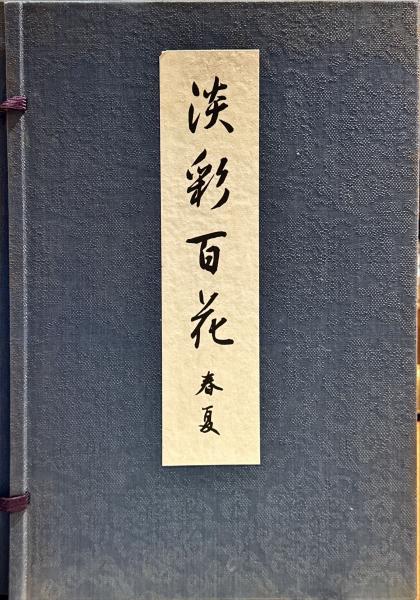 淡彩百花 春夏